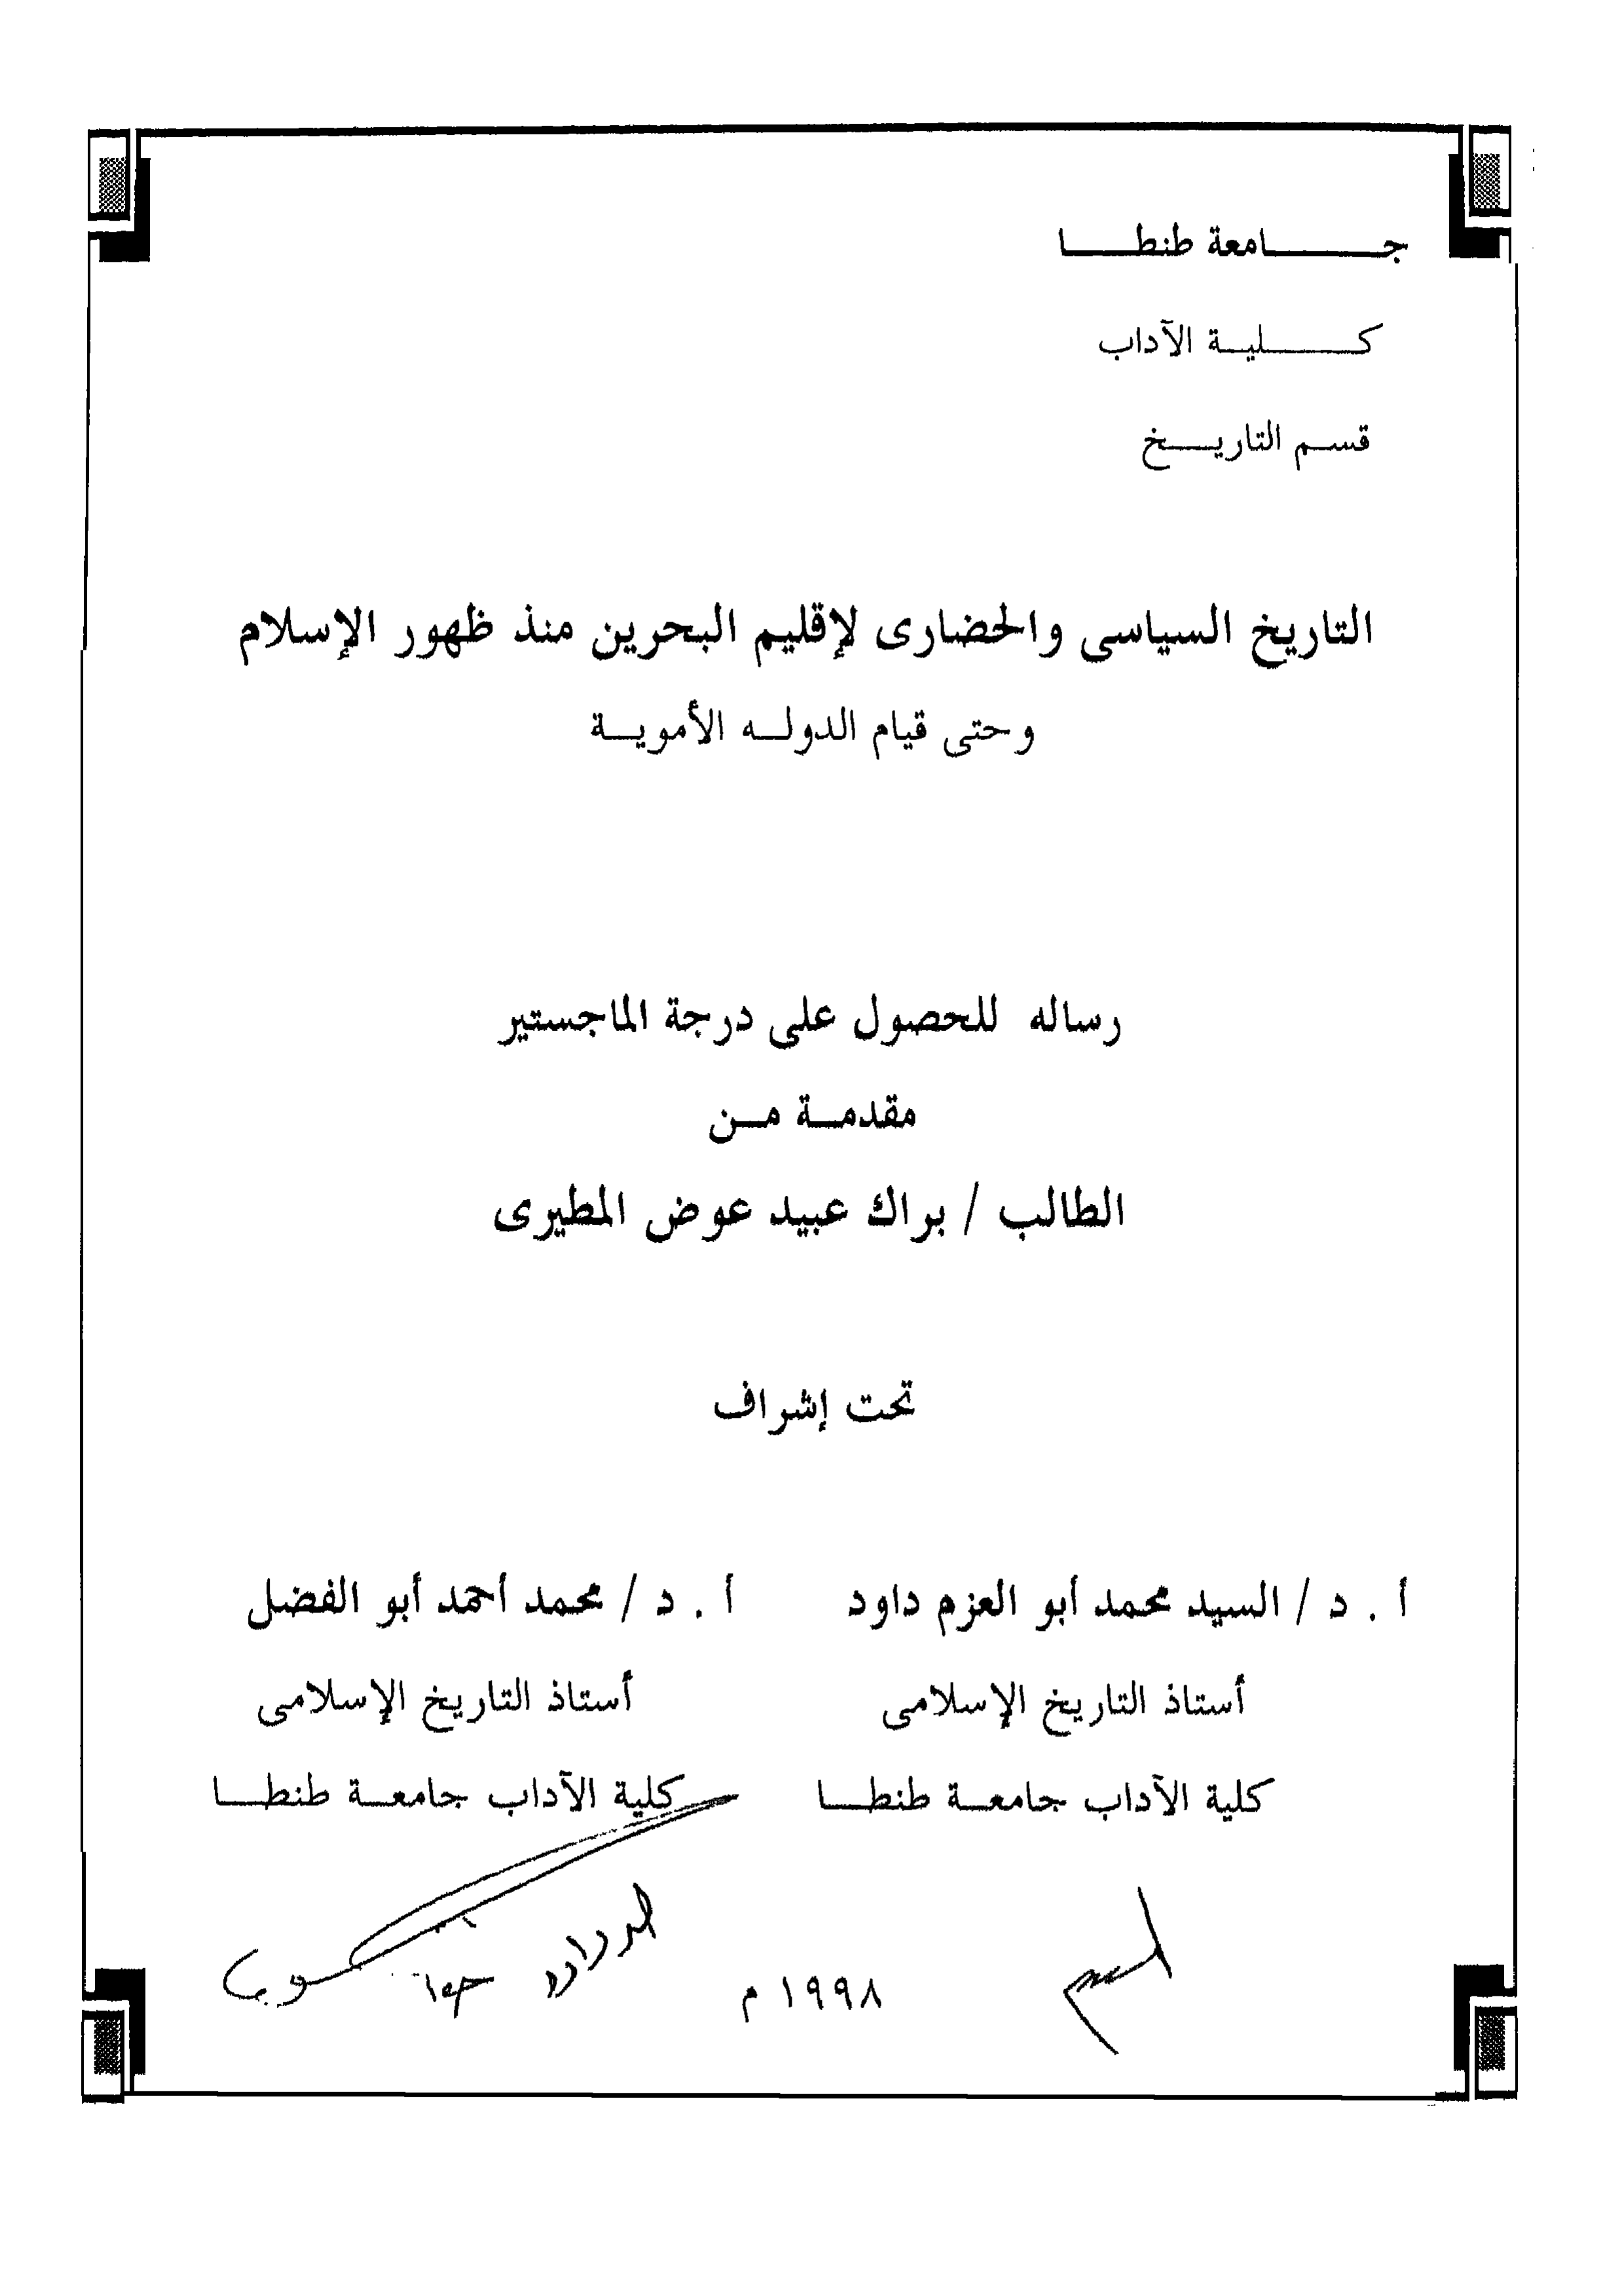 جامعة طنطا
كلية الآداب
قسم التاريخ
التاريخ السياسى والحضارى لإقليم البحرين منذ ظهور الإسلام
وحتى قيام الدوله الأموية
رساله للحصول على درجة الماجستير
مقدمة من
الطالب / براك عبيد عوض المطيرى
تحت إشراف
أ . د / السيد محمد أبو العزم داود
أستاذ التاريخ الإسلامى
كلية الآداب جامعة طنطا
أ . د / محمد أحمد أبو الفضل
أستاذ التاريخ الإسلامى
كلية الآداب جامعة طنطا
١٩٩٨ م